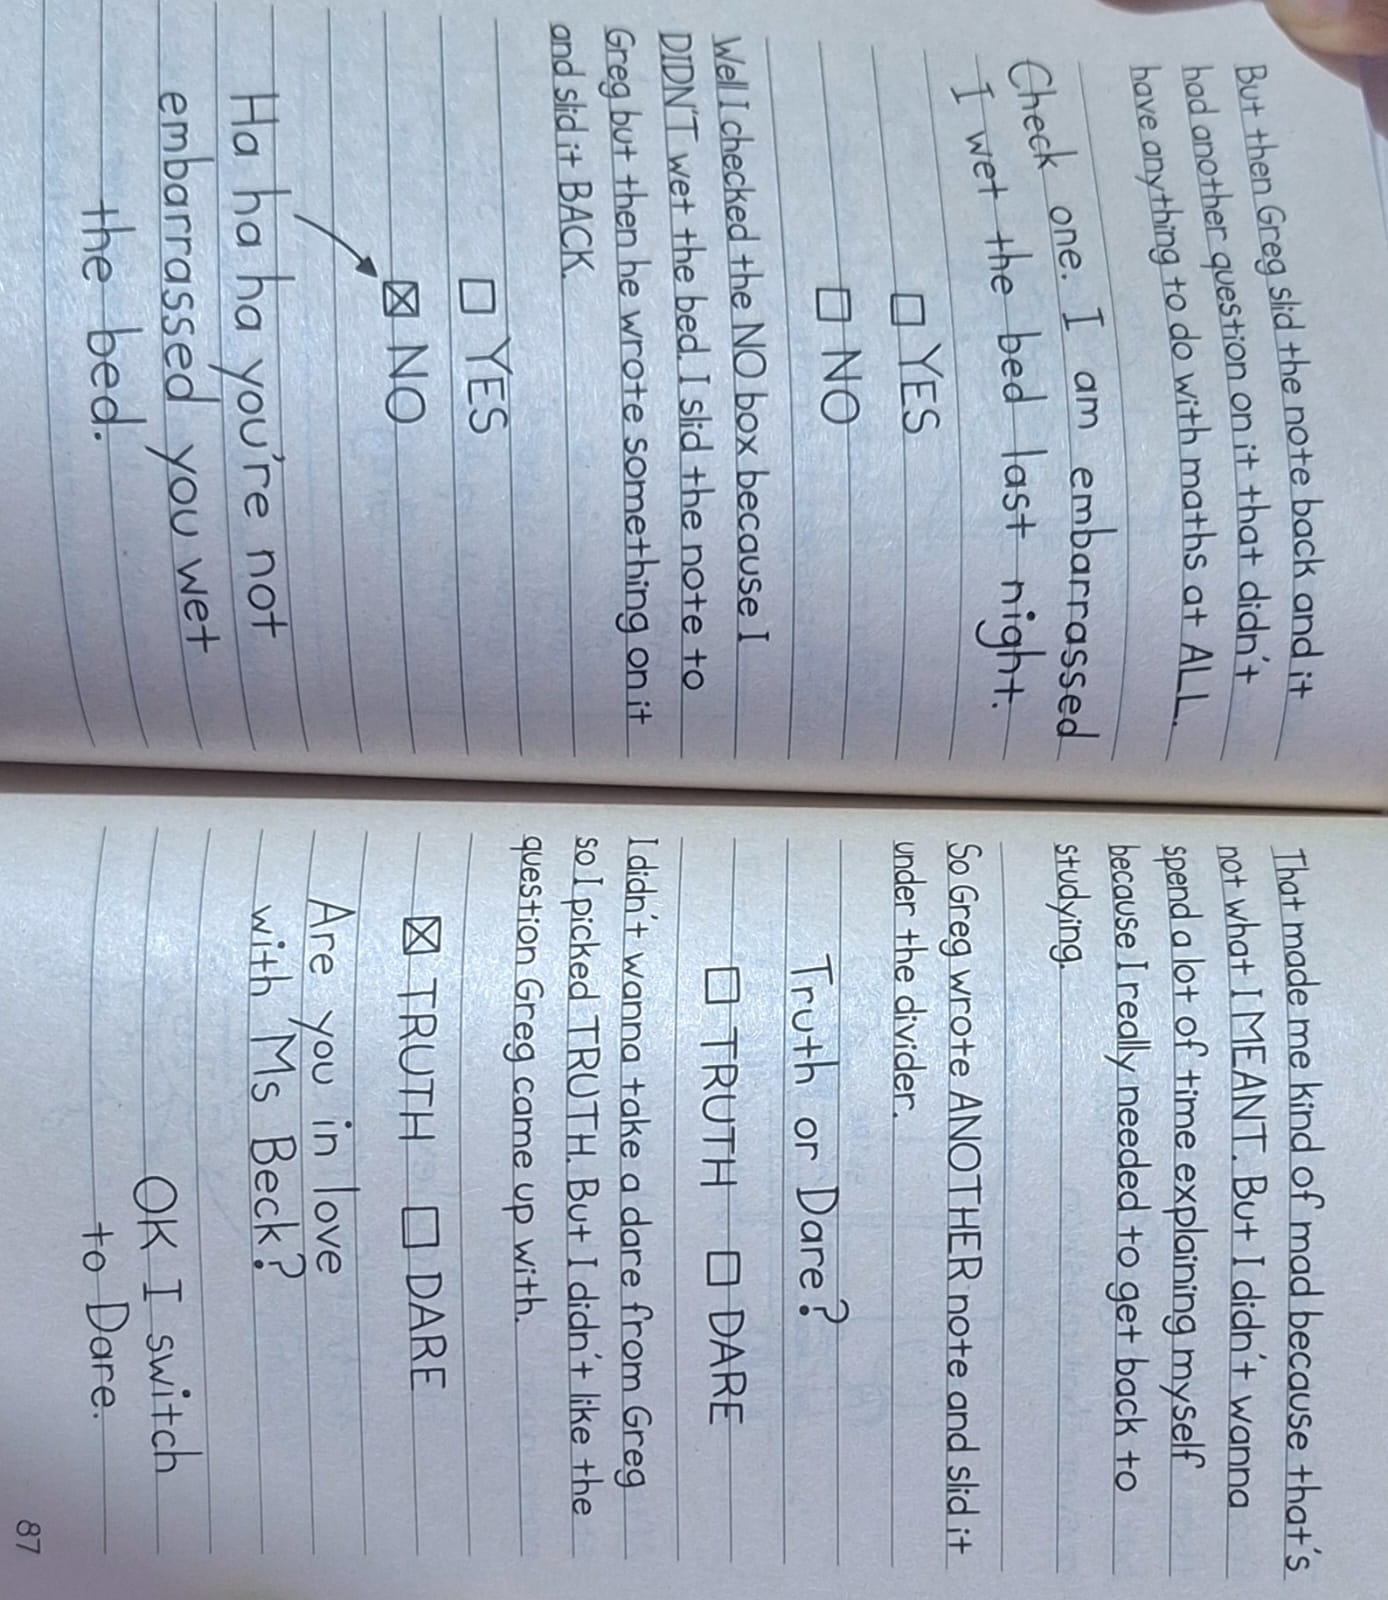 But then Greg slid the note back and it
had another question on it that didn't
have anything to do with maths at ALL.
Check one. I am embarrassed
I wet the bed last night.
☐ YES
☐ NO
Well I checked the NO box because I
DIDN'T wet the bed. I slid the note to
Greg but then he wrote something on it
and slid it BACK.
☐ YES
☒ NO
Ha ha ha you're not
embarrassed you wet
the bed.
That made me kind of mad because that's
not what I MEANT. But I didn't wanna
spend a lot of time explaining myself
because I really needed to get back to
studying.
So Greg wrote ANOTHER note and slid it
under the divider.
Truth or Dare?
☐ TRUTH ☐ DARE
I didn't wanna take a dare from Greg
so I picked TRUTH. But I didn't like the
question Greg came up with.
☒ TRUTH ☐ DARE
Are you in love
with Ms Beck?
OK I switch
to Dare.
87